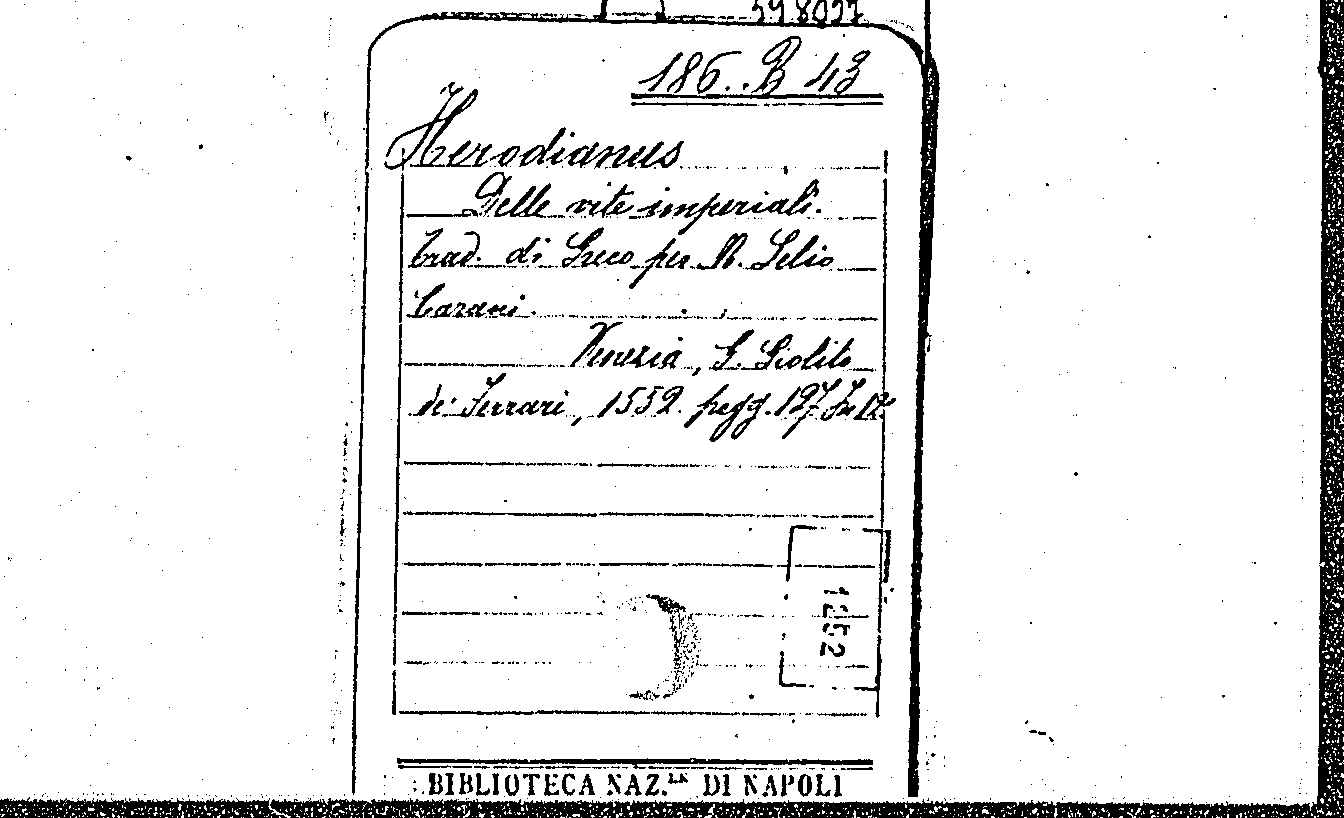 186. B 43
Herodianus
Delle vite imperiali.
Trad. di Greco per M. Lelio
Carani.
Venezia, G. Giolito
de' Ferrari, 1552. pagg. 127 In 12°
1252
BIBLIOTECA NAZ.LE DI NAPOLI